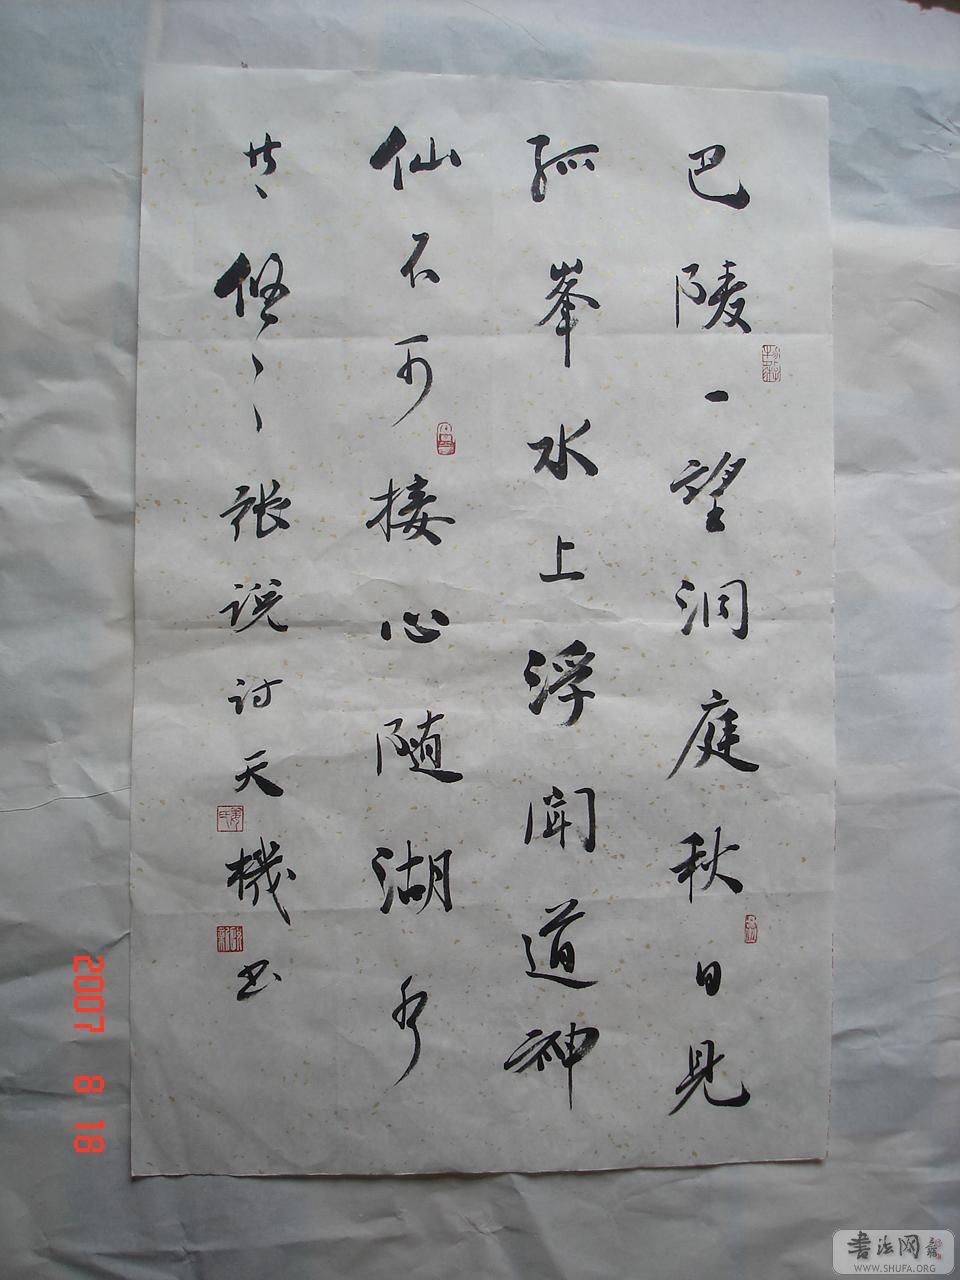 巴陵一望洞庭秋日見
孤峯水上浮闻道神
仙不可接心随湖水
共悠〻〻张说讨天機书
2007 8 18
書法网
WWW.SHUFA.ORG